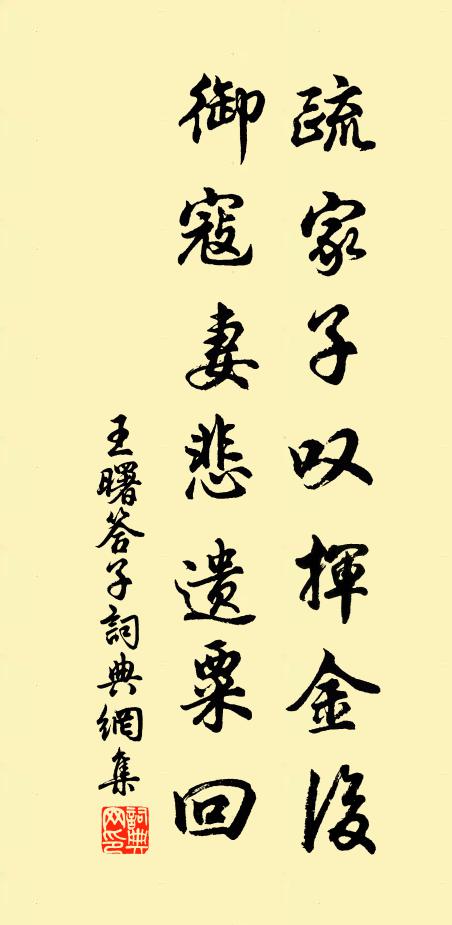 疏家子叹揮金後
御寇妻悲遺粟回
王曙答子詞典網集
詞典網印